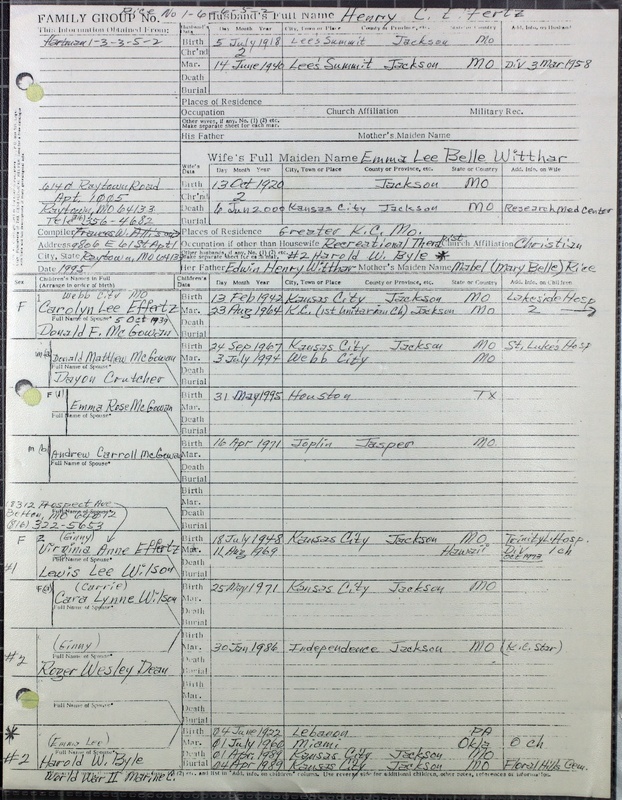 FAMILY GROUP No. Price No 1-6-6-5-2 Husband's Full Name Henry C. Effertz
This Information Obtained From:
Hartman 1-3-3-5-2
Husband's Data Day Month Year City, Town or Place County or Province, etc. State or Country Add. Info. on Husband
Birth 5 July 1918 Lee's Summit Jackson Mo
Chr'nd 2
Mar. 14 June 1940 Lee's Summit Jackson MO Div 3 Mar 1958
Death
Burial
Places of Residence
Occupation Church Affiliation Military Rec.
Other wives, if any. No. (1) (2) etc.
Make separate sheet for each mar.
His Father Mother's Maiden Name
Wife's Full Maiden Name Emma Lee Belle Witthar
Wife's Data Day Month Year City, Town or Place County or Province, etc. State or Country Add. Info. on Wife
6140 Raytown Road
Apt. 1005
Raytown, MO 64133
Tel (816) 356-4682
Birth 13 Oct 1920 Jackson MO
Chr'nd 2
Death 6 Jun 2000 Kansas City Jackson MO Research Med Center
Burial
Compiler Frances W.
Places of Residence Greater K.C. Mo.
Address 9806 E 61 St Apt 1
Occupation if other than Housewife Recreational Therapist Church Affiliation Christian
City, State Raytown, Mo 64133
Make separate sheet for each mar. #2 Harold W. Byle *
Date 1995
Her Father Edwin Henry Witthar Mother's Maiden Name Mabel (Mary Belle) Rice
Sex Children's Names in Full
(Arrange in order of birth)
Children's Data Day Month Year City, Town or Place County or Province, etc. State or Country Add. Info. on Children
1 Webb City MO
F Carolyn Lee Effertz
Full Name of Spouse* 5 Oct 1939
Donald F. McGowan
Birth 13 Feb 1942 Kansas City Jackson MO Lakeside Hosp
Mar. 23 Aug 1964 K.C. (1st Unitarian Ch) Jackson MO 2 →
Death
Burial
Donald Matthew McGowan
Full Name of Spouse*
Dayon Crutcher
Birth 24 Sep 1967 Kansas City Jackson MO St. Luke's Hosp
Mar. 3 July 1994 Webb City MO
Death
Burial
F Emma Rose McGowan
Full Name of Spouse*
Birth 31 May 1995 Houston TX
Mar.
Death
Burial
m Andrew Carroll McGowan
Full Name of Spouse*
Birth 16 Apr 1971 Joplin Jasper MO
Mar.
Death
Burial
18312 Prospect Ave
Belton, MO 64012
(816) 322-5653
Birth
Mar.
Death
Burial
2 (Ginny)
F Virginia Anne Effertz
#1 Lewis Lee Wilson
Birth 18 July 1948 Kansas City Jackson MO Trinity L. Hosp.
Mar. 11 Aug 1969 Hawaii Div Oct 1973 1 ch
Death
Burial
(Carrie)
F(a) Cara Lynne Wilson
Full Name of Spouse*
Birth 25 May 1971 Kansas City Jackson MO
Mar.
Death
Burial
(Ginny)
Full Name of Spouse*
#2 Roger Wesley Dean
Birth
Mar. 30 Jan 1986 Independence Jackson MO (K.C. Star)
Death
Burial
Full Name of Spouse*
Birth
Mar.
Death
Burial
*
(Emma Lee)
Full Name of Spouse*
#2 Harold W. Byle
World War II Marine C.
Birth 04 June 1922 Lebanon PA
Mar. 01 July 1960 Miami Okla 0 ch
Death 01 Apr 1989 Kansas City Jackson MO
Burial 04 Apr 1989 Kansas City Jackson MO Floral Hills Cem.
(2) etc. and list in "Add. info. on children" column. Use reverse side for additional children, other notes, references or information.